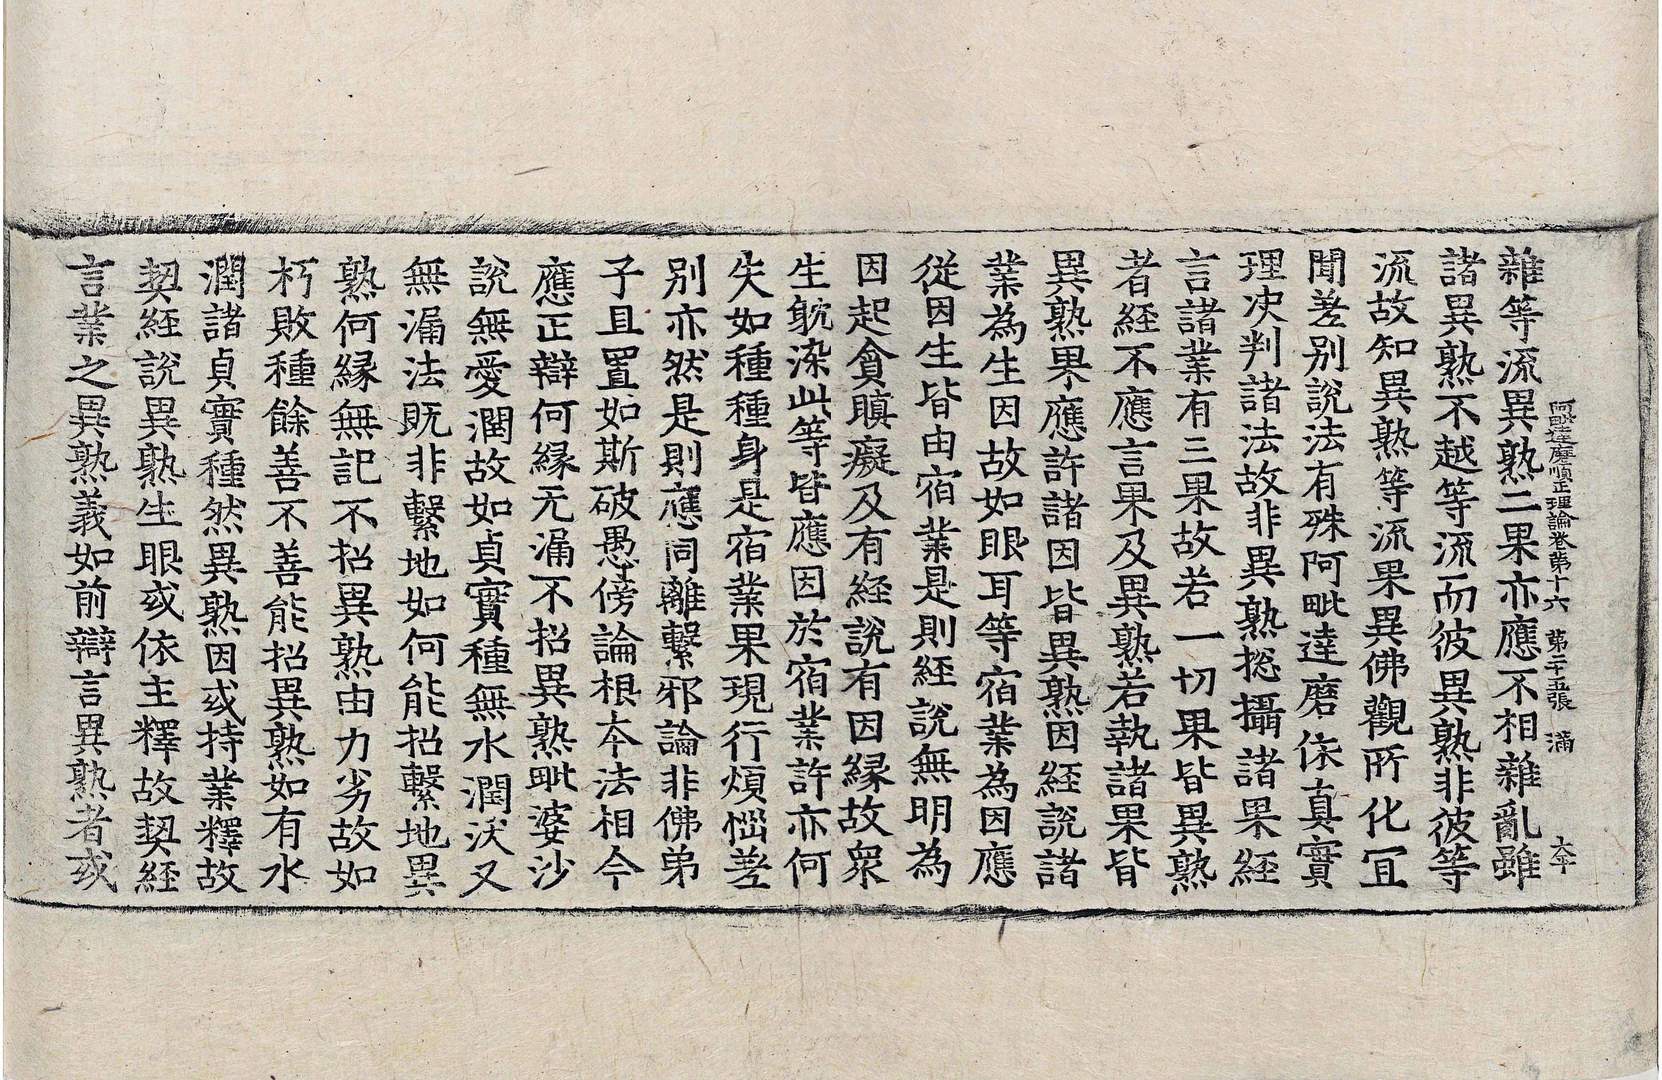 阿毗達磨順正理論卷第十六　第二十五張　滿
雜等流異熟二果亦應不相雜亂雖
諸異熟不越等流而彼異熟非彼等
流故知異熟等流果異佛觀所化冝
聞差别說法有殊阿毗達磨依真實
理决判諸法故非異熟揔攝諸果經
言諸業有三果故若一切果皆異熟
者經不應言果及異熟若執諸果皆
異熟果應許諸因皆異熟因經說諸
業為生因故如眼耳等宿業為因應
從因生皆由宿業是則經說無明為
因起貪瞋癡及有經說有因縁故衆
生躭染此等皆應因於宿業許亦何
失如種種身是宿業果現行煩惱差
别亦然是則應同離繫邪論非佛弟
子且置如斯破愚傍論根本法相今
應正辯何縁无漏不招異熟毗婆沙
說無愛潤故如貞實種無水潤沃又
無漏法既非繫地如何能招繫地異
熟何縁無記不招異熟由力劣故如
朽敗種餘善不善能招異熟如有水
潤諸貞實種然異熟因或持業釋故
契經說異熟生眼或依主釋故契經
言業之異熟義如前辯言異熟者或